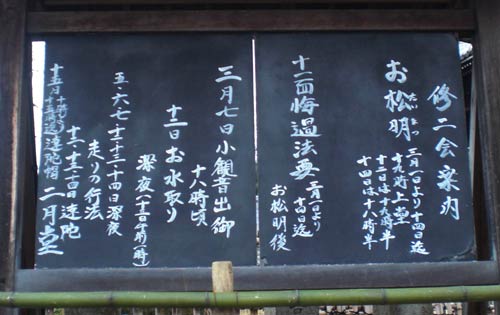 修二会案内
お松明 三月一日より十四日迄
たいまつ
十九時上堂
十二日は十九時半
十四日は十八時半
十一面悔過法要 三月一日より
十四日迄
お松明後
三月七日小観音出御
十八時頃
十二日お水取り
深夜(十三日午前一時)
五・六・七・十二・十三・十四日深夜
走りの行法
十二・十三・十四日達陀
二月堂